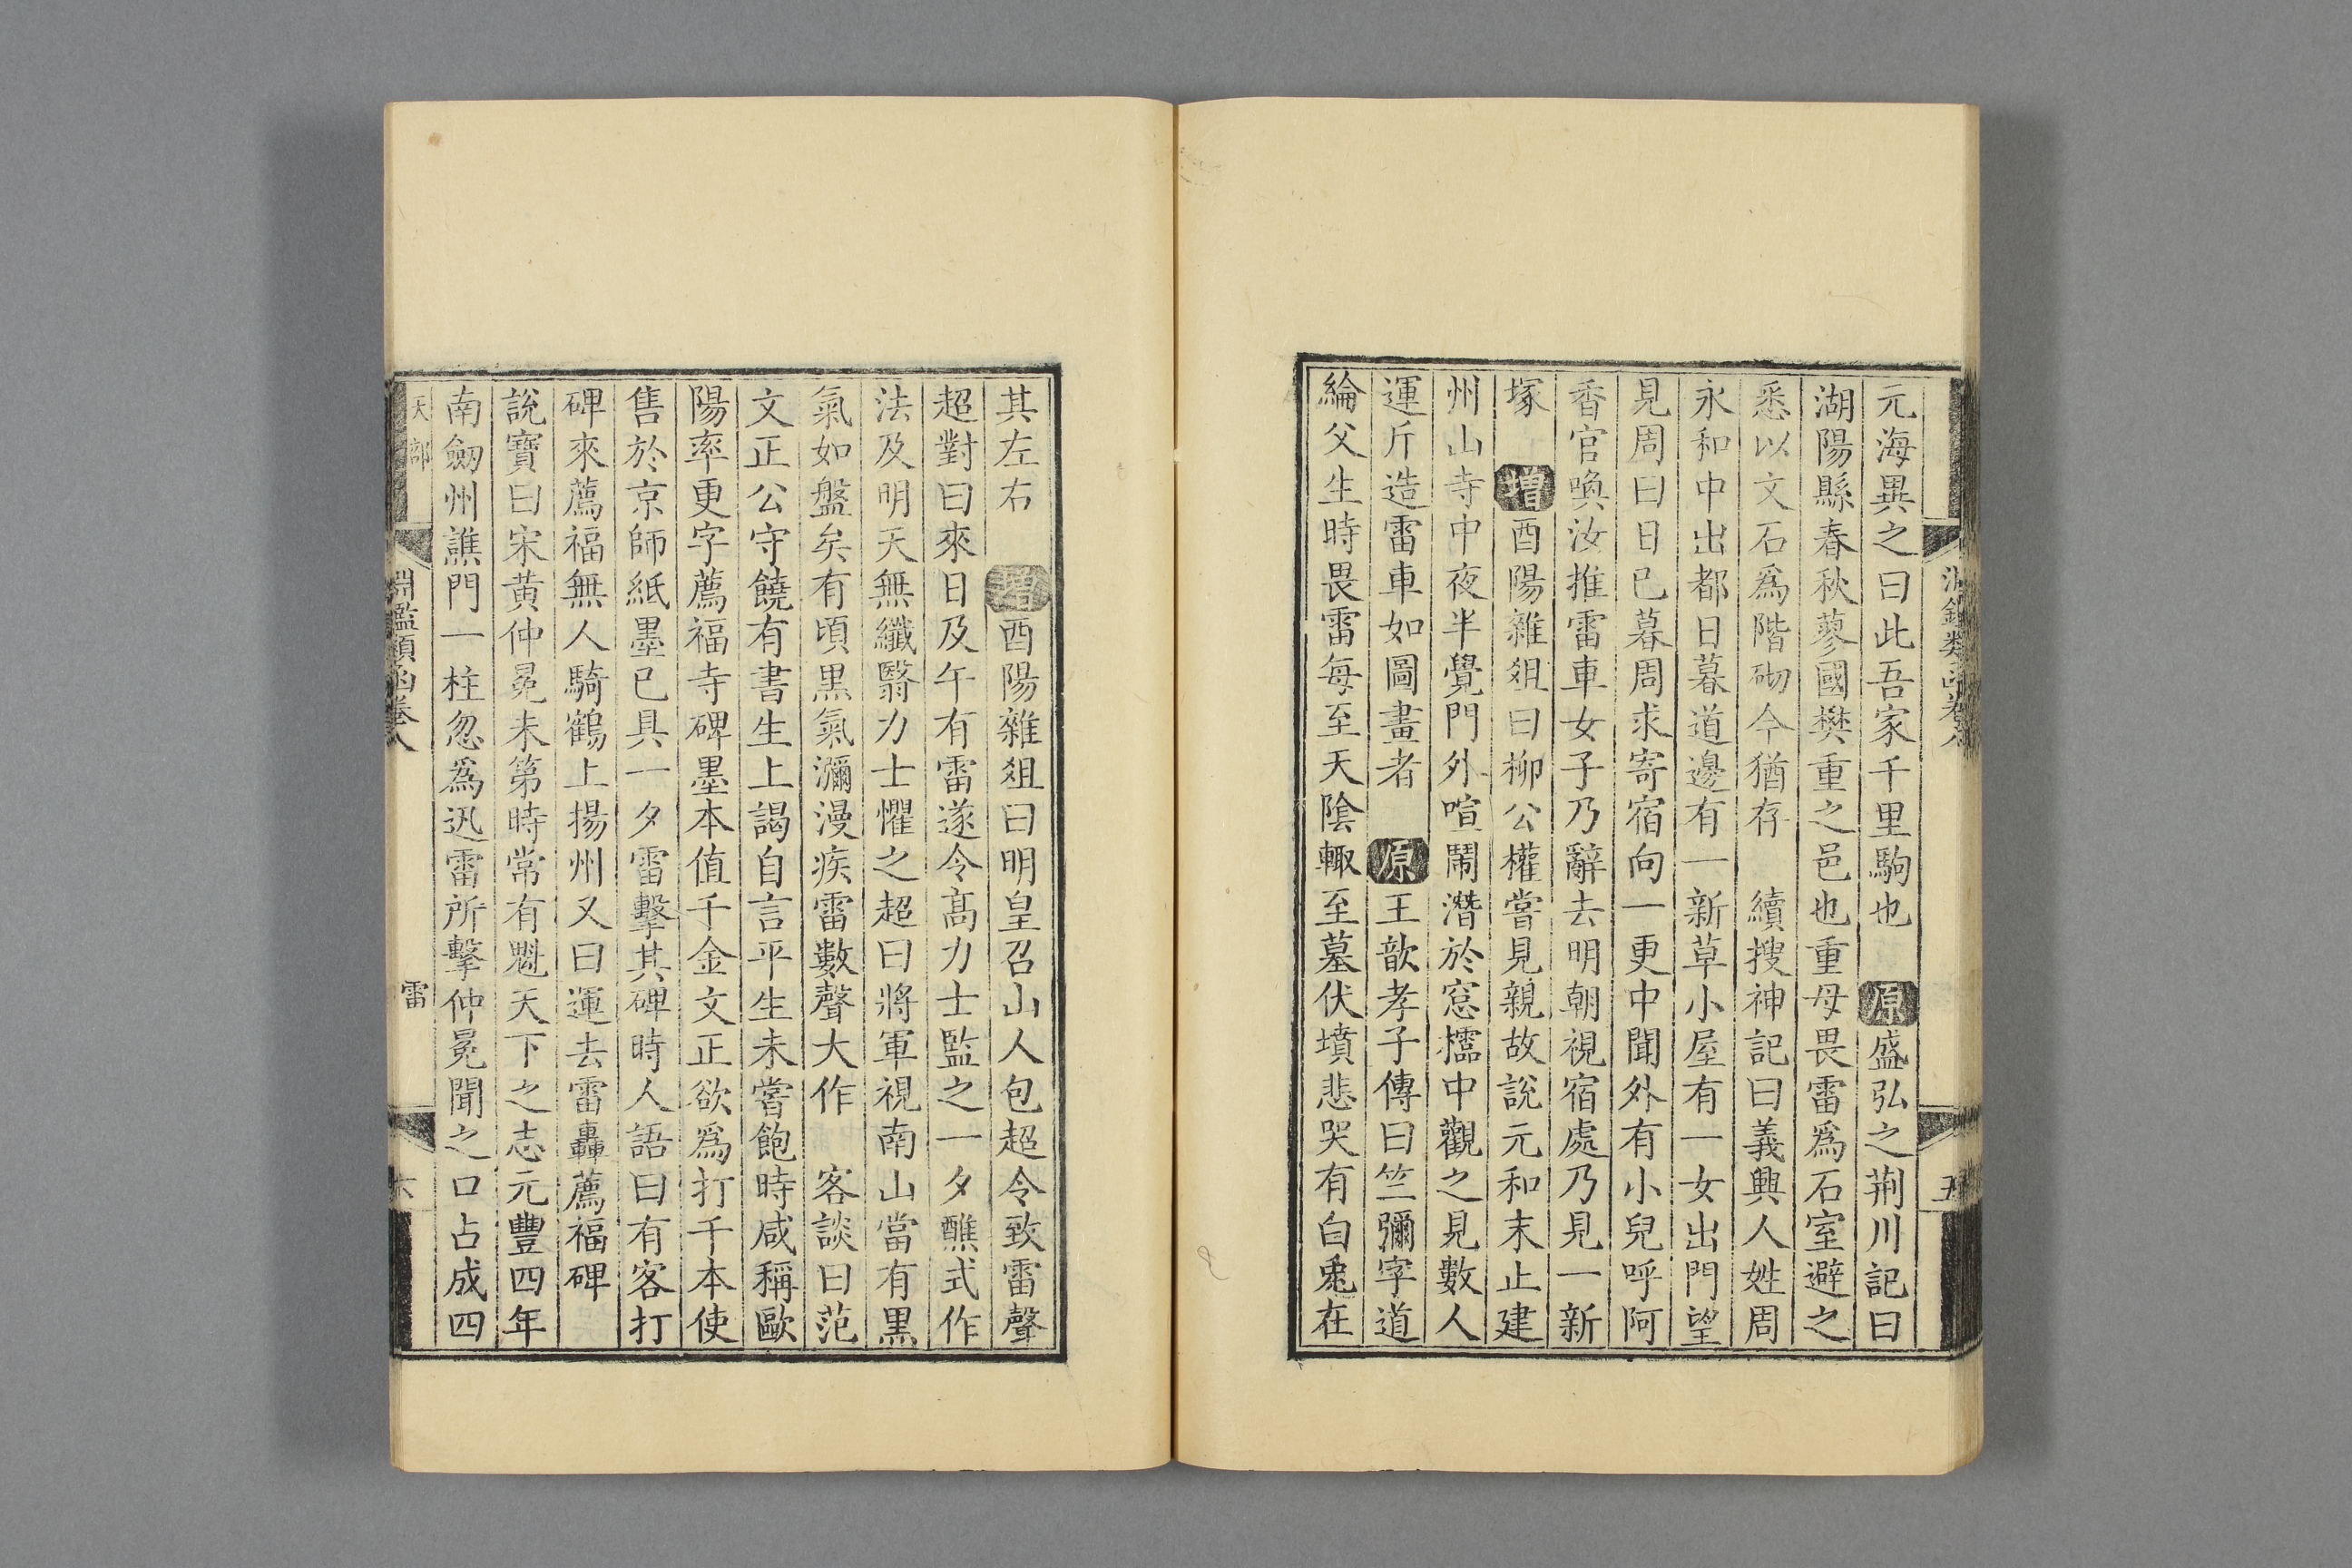 淵鑑類函卷八
五
元海異之曰此吾家千里駒也　原盛弘之荆川記曰
湖陽縣春秋蓼國樊重之邑也重母畏雷爲石室避之
悉以文石爲階砌今猶存　續搜神記曰義興人姓周
永和中出都日暮道邊有一新草小屋有一女出門望
見周曰日已暮周求寄宿向一更中聞外有小兒呼阿
香官喚汝推雷車女子乃辭去明朝視宿處乃見一新
塚　增酉陽雜俎曰柳公權嘗見親故說元和末止建
州山寺中夜半覺門外喧鬧潛於窓櫺中觀之見數人
運斤造雷車如圖畫者　原王歆孝子傳曰竺彌字道
綸父生時畏雷每至天陰輙至墓伏墳悲哭有白兎在
其左右　增酉陽雜俎曰明皇召山人包超令致雷聲
超對曰來日及午有雷遂令高力士監之一夕醮式作
法及明天無纖翳力士懼之超曰將軍視南山當有黑
氣如盤矣有頃黑氣瀰漫疾雷數聲大作　客談曰范
文正公守饒有書生上謁自言平生未嘗飽時咸稱歐
陽率更字薦福寺碑墨本值千金文正欲爲打千本使
售於京師紙墨已具一夕雷擊其碑時人語曰有客打
碑來薦福無人騎鶴上揚州又曰運去雷轟薦福碑
說寶曰宋黄仲冕未第時常有魁天下之志元豐四年
南劒州譙門一柱忽爲迅雷所擊仲冕聞之口占成四
天部
淵鑑類函卷八
雷
六